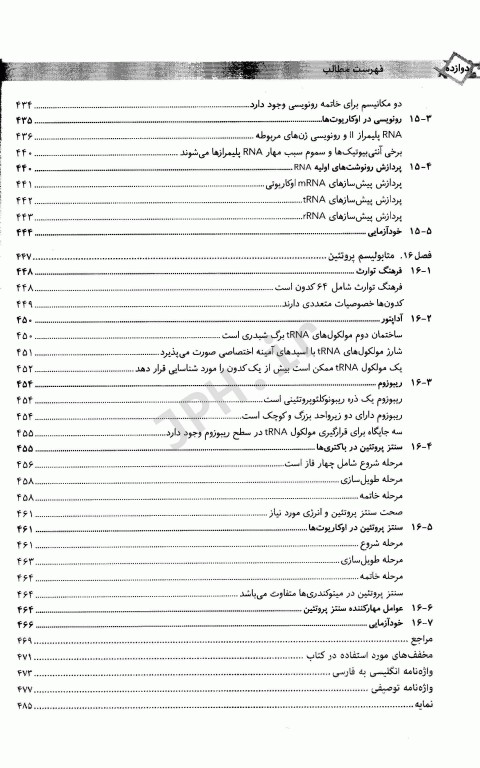 دوازده
فهرست مطالب
دو مکانیسم برای خاتمه رونویسی وجود دارد ۴۳۴
۱۵-۳ رونویسی در اوکاریوت‌ها ۴۳۵
RNA پلیمراز II و رونویسی ژن‌های مربوطه ۴۳۶
برخی آنتی‌بیوتیک‌ها و سموم سبب مهار RNA پلیمرازها می‌شوند ۴۴۰
۱۵-۴ پردازش رونوشت‌های اولیه RNA ۴۴۰
پردازش پیش‌سازهای mRNA اوکاریوتی ۴۴۱
پردازش پیش‌سازهای tRNA ۴۴۲
پردازش پیش‌سازهای rRNA ۴۴۳
۱۵-۵ خودآزمایی ۴۴۴
فصل ۱۶. متابولیسم پروتئین ۴۴۷
۱۶-۱ فرهنگ توارث ۴۴۸
فرهنگ توارث شامل ۶۴ کدون است ۴۴۸
کدون‌ها خصوصیات متعددی دارند ۴۴۹
۱۶-۲ آداپتور ۴۵۰
ساختمان دوم مولکول‌های tRNA برگ شبدری است ۴۵۰
شارژ مولکول‌های tRNA با اسیدهای آمینه اختصاصی صورت می‌پذیرد ۴۵۱
یک مولکول tRNA ممکن است بیش از یک کدون را مورد شناسایی قرار دهد ۴۵۲
۱۶-۳ ریبوزوم ۴۵۴
ریبوزوم یک ذره ریبونوکلئوپروتئینی است ۴۵۴
ریبوزوم دارای دو زیرواحد بزرگ و کوچک است ۴۵۴
سه جایگاه برای قرارگیری مولکول tRNA در سطح ریبوزوم وجود دارد ۴۵۵
۱۶-۴ سنتز پروتئین در باکتری‌ها ۴۵۵
مرحله شروع شامل چهار فاز است ۴۵۶
مرحله طویل‌سازی ۴۵۸
مرحله خاتمه ۴۵۸
صحت سنتز پروتئین و انرژی مورد نیاز ۴۶۱
۱۶-۵ سنتز پروتئین در اوکاریوت‌ها ۴۶۱
مرحله شروع ۴۶۱
مرحله طویل‌سازی ۴۶۳
مرحله خاتمه ۴۶۴
سنتز پروتئین در میتوکندری‌ها متفاوت می‌باشد ۴۶۴
۱۶-۶ عوامل مهارکننده سنتز پروتئین ۴۶۴
۱۶-۷ خودآزمایی ۴۶۶
مراجع ۴۶۹
مخفف‌های مورد استفاده در کتاب ۴۷۱
واژه‌نامه انگلیسی به فارسی ۴۷۳
واژه‌نامه توصیفی ۴۷۷
نمایه ۴۸۵
JPH.ir